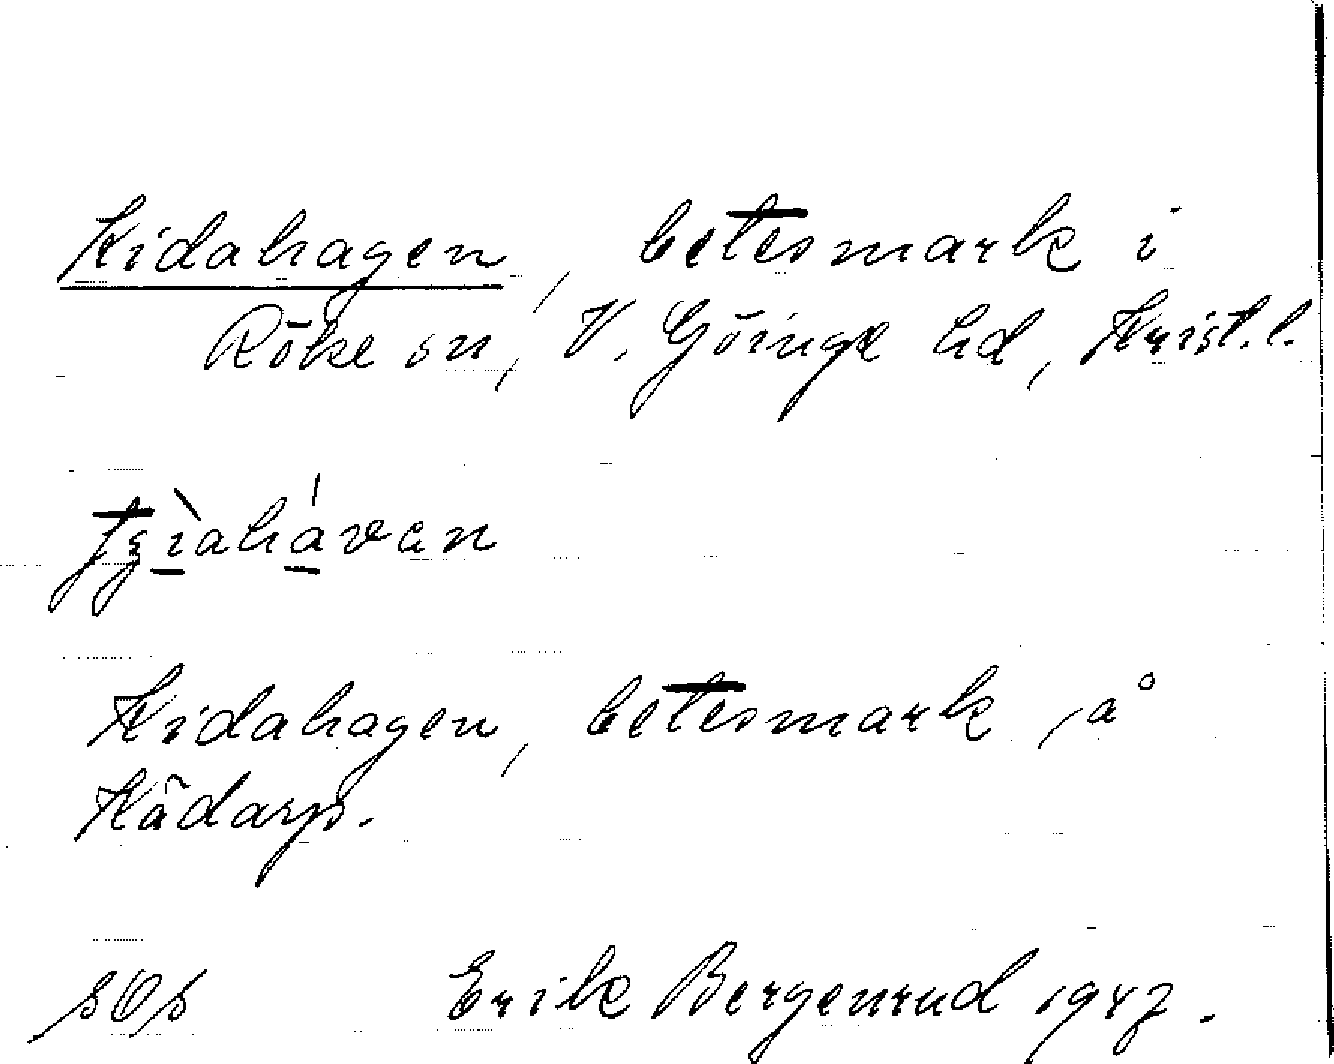 Kidahagen, betesmark i
Röke sn, V. Göinge hd, Krist. l.
Kidahagen, betesmark på
Kådarp.
Erik Bergenrud 1947.